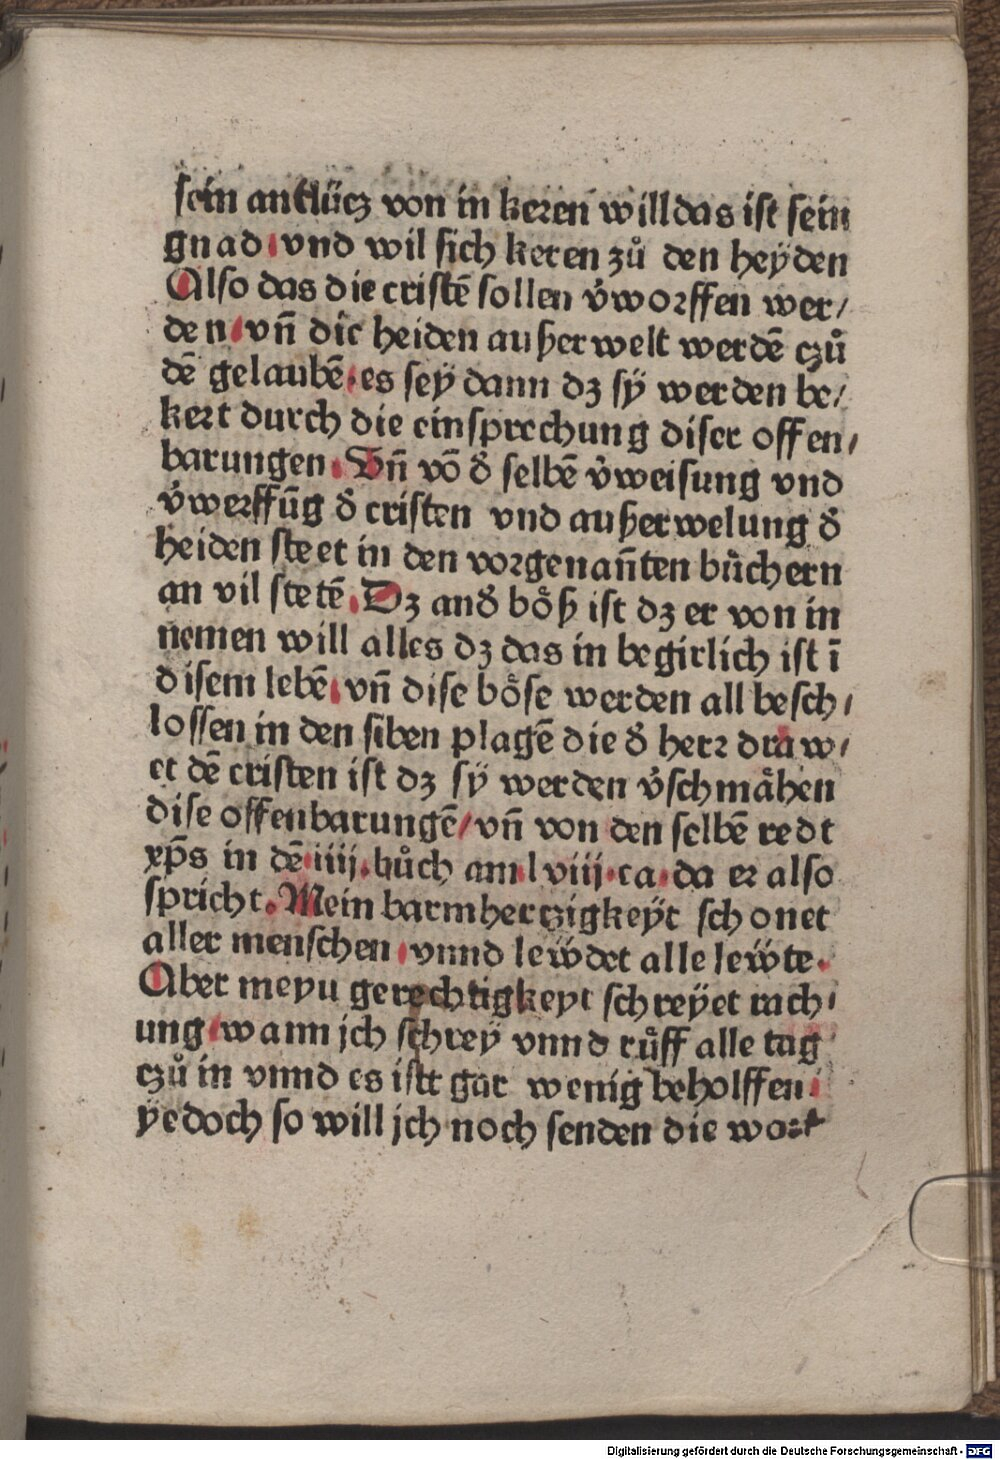 sein antlücz von in keren will das ist sein
gnad / vnd wil sich keren zů den heÿden
Also das die cristē sollen v̓worffen wer/
den / vn̄ die heiden außerwelt werdē czů
dē gelaubē . es seÿ dann dz sÿ werden be/
kert durch die einsprechung diser offen/
barungen . Vn̄ vō d̓ selbē v̓weisung vnd
v̓werffūg d̓ cristen vnd außerwelung d̓
heiden steet in den vorgenan̄ten bůchern
an vil stetē . Dz and̓ bo̊ß ist dz er von in
nemen will alles dz das in begirlich ist ī
disem lebē / vn̄ dise bo̊se werden all besch/
lossen in den siben plagē die d̓ herr draw/
et dē cristen ist dz sÿ werden v̓schmåhen
dise offenbarungē / vn̄ von den selbē redt
xp̄s in dē . iiij . bůch am . lviij . ca . da er also
spricht . Mein barmhertzigkeÿt schonet
aller menschen / vnnd lewdet alle lewte .
Aber meyn gerechtigkeyt schreÿet rach/
ung / wann jch schreÿ vnnd růff alle tag
czů in vnnd es istt gar wenig beholffen /
ÿedoch so will jch noch senden die wort
Digitalisierung gefördert durch die Deutsche Forschungsgemeinschaft - DFG